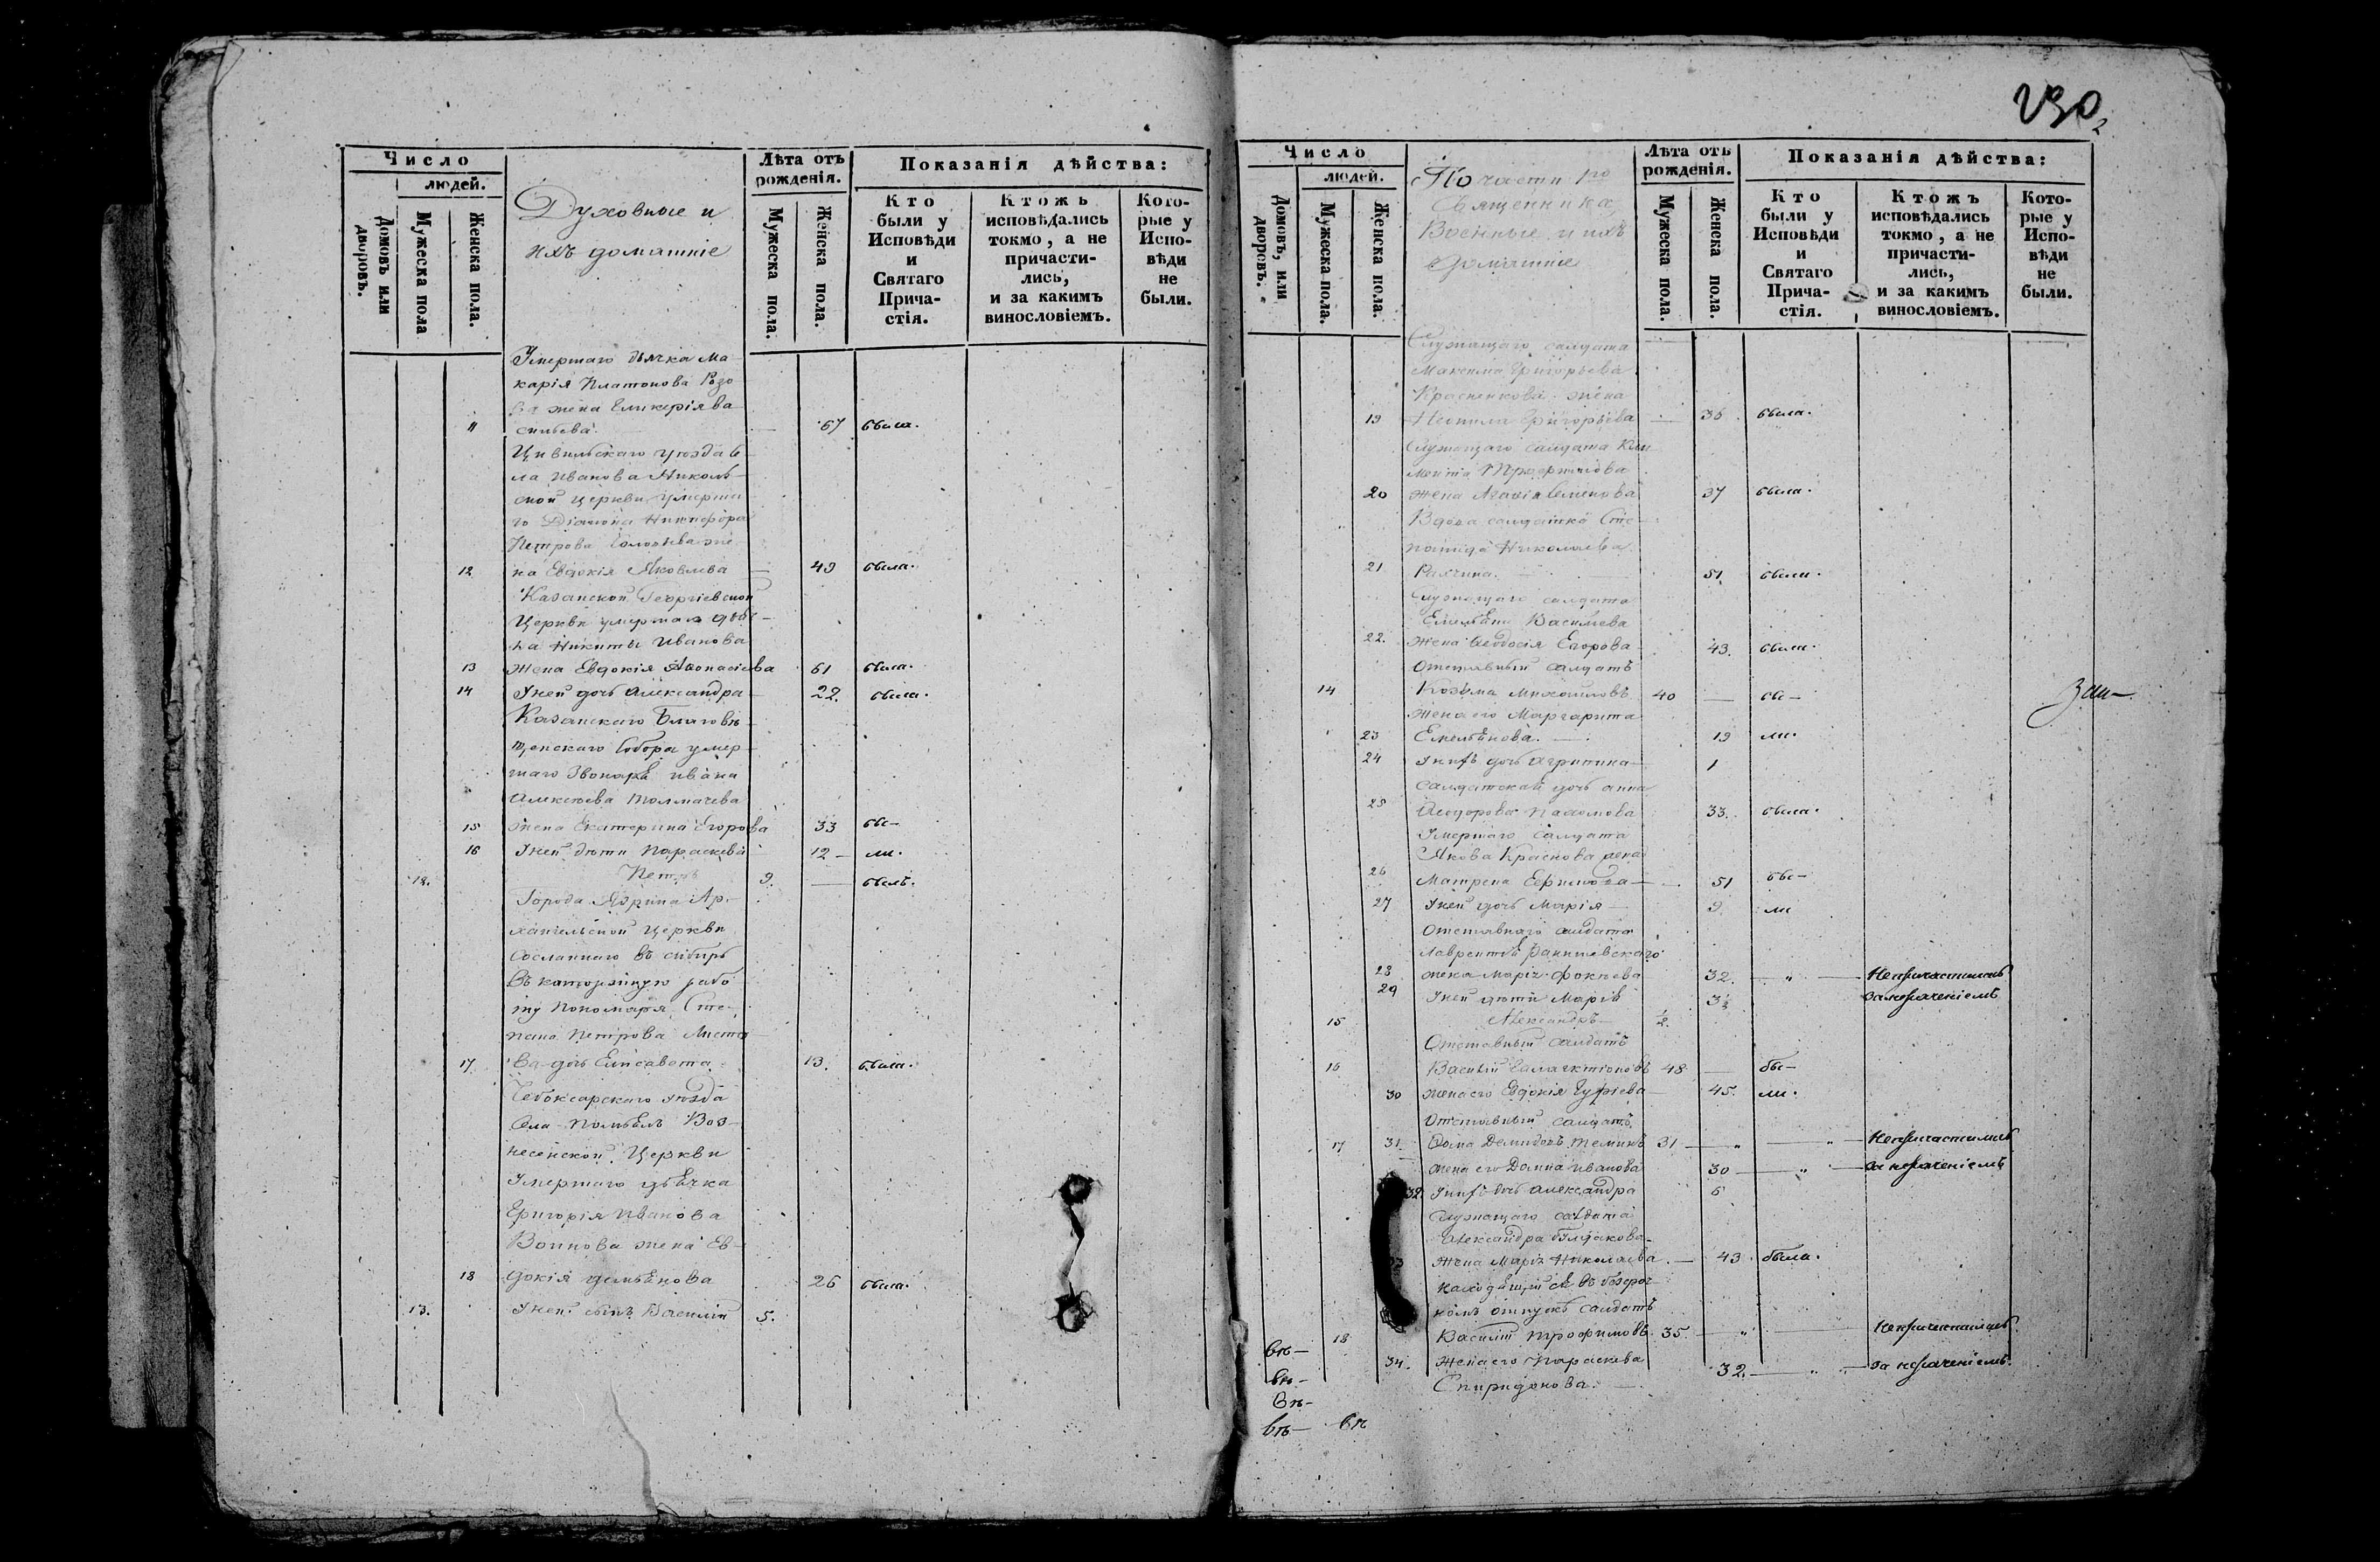 Число
людей.
Домовъ или дворовъ.
Мужеска пола
Женска пола.
Духовные и
ихъ домашніе
Лѣта отъ рожденія.
Мужеска пола.
Женска пола.
Показанія дѣйства:
Кто были у Исповѣди и Святаго Прича-стія.
Ктожъ исповѣдались токмо, а не причасти-лись, и за какимъ винословіемъ.
Кото-рые у Испо-вѣди не были.
Умершаго дьячка Ма
карія Платонова Розо
ва жена Гликерія Ва
11 сильева 67 была.
Цивильскаго уѣзда се
ла Иванова Николь
ской церкви умерша
го Діакона Никифора
Петрова жe
12 на Евдокія Яковлева 49 была.
Казанской Георгіевской
Церкви умершаго дья
ка Никиты Иванова
13 жена Евдокія Афонасіева 61 была.
14 У ней дочь Александра 22. была.
Казанскаго Благовѣ
щенскаго Собора умер
шаго Звонаря Ивана
Алексѣева Толмачева
15 жена Екатерина Егорова 33 бы-
16 У ней дѣти Параскева 12 ли.
12. Петръ 9. былъ.
Города Ядрина Ар-
хангельской Церкви
Сосланнаго въ сибирь
въ каторжную рабо
ту Пономаря Сте-
пана Петрова
17 ва дочь Елисавета 13. была.
Чебоксарскаго уѣзда
Села Воз
несенской Церкви
Умершаго дьячка
Григорія Иванова
Воинова жена Ев-
18 докія Демьянова 26 была.
13. У ней сынъ Василій 5.
230
Число
людей.
Домовъ, или дворовъ.
Мужеска пола.
Женска пола.
По части 1го
Священника
Военные и ихъ
домашніе
Лѣта отъ рожденія.
Мужеска пола.
Женска пола.
Показанія дѣйства:
Кто были у Исповѣди и Святаго Прича-стія.
Ктожъ исповѣдались токмо, а не причасти-лись, и за какимъ винословіемъ.
Кото-рые у Испо-вѣди не были.
Служащаго салдата
Максима Григорьева
жена
19 Неонила Григорьева 36 была.
Служащаго салдата Кли
мента
20 жена Семенова 37 была.
Вдова салдатка Сте
панида Николаева
21 51 была.
Служащаго салдата
Василіева
22. жена Феодосія Егорова 43. была.
Отставный салдатъ
14 Козьма Михайловъ 40 бы-
жена его Маргарита
23 Емельянова. 19 ли.
24 У нихъ дочь Агрипина 1
Салдатская дочь Анна
25 Феодорова Пахомова 33. была.
Умершаго Салдата
Якова Краснова жена
26 Матрена Ефимова 51 бы-
27 У ней дочь Марія 9. ли
Отставнаго салдата
Лаврентія
28 жена Марія Фокѣева 32. „ Непричастилась
29 У ней дѣти Марія 3 за нераченіемъ
15 Александръ ½.
Отставный Салдатъ
16 Василій Галактіоновъ 48 бы-
30 жена его Евдокія Гурiева 45. ли.
Отставный салдатъ
17 31. Фома Демидовъ 31 „ „ Непричастились
жена его Иванова 30 „ за нераченіемъ
32. У нихъ дочь Александра 6
Служащаго салдата
Александра Булдакова
33 жена Марія Николаева. 43 была.
находящійся въ безсроч
номъ отпуску Салдатъ
18 Василій Трофимовъ 35. „ Непричастились
34. жена его Параскева 32. „ за нераченіемъ.
Спиридонова.